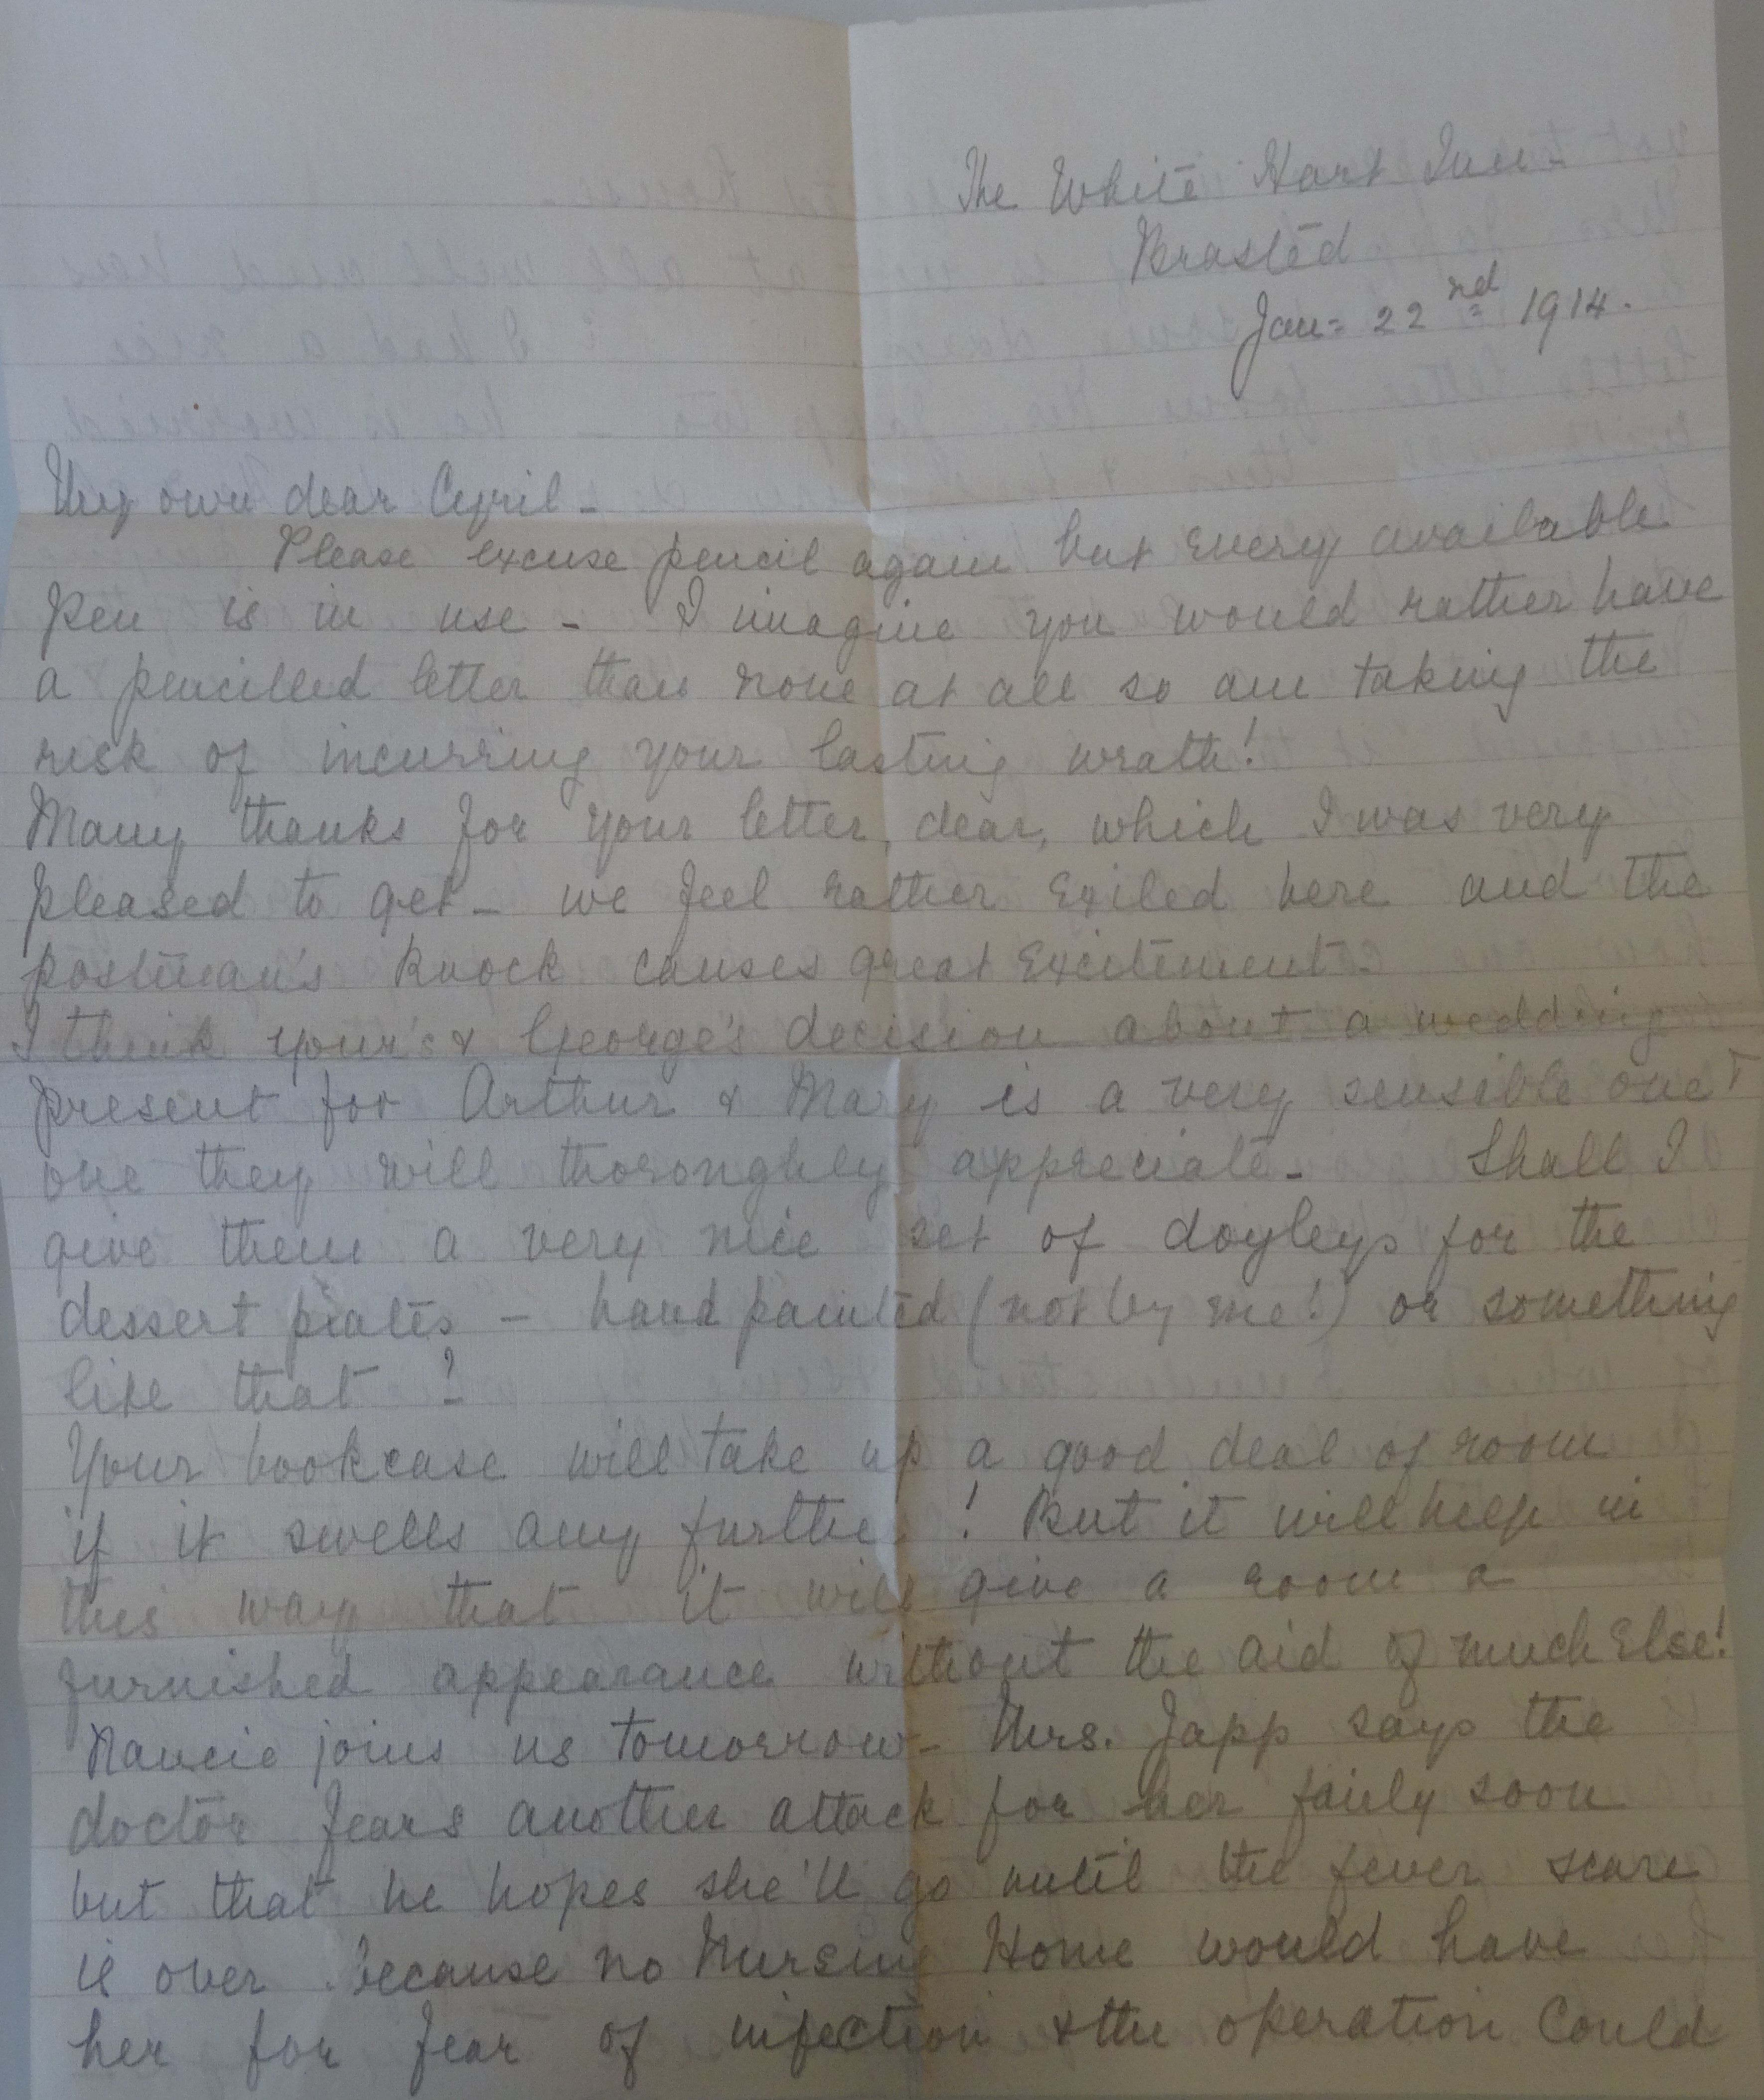 The White Hart Inn -
Brasted
Jan= 22nd 1914.
My own dear Cyril -
Please excuse pencil again but every available
pen is in use - I imagine you would rather have
a pencilled letter than none at all so am taking the
risk of incurring your lasting wrath!
Many thanks for your letter, dear, which I was very
pleased to get - we feel rather exiled here and the
postman's knock causes great excitement -
I think your's & George's decision about a wedding
present for Arthur & Mary is a very sensible one &
one they will thoroughly appreciate - Shall I
give them a very nice set of doyleys for the
dessert plates - hand painted (not by me!) or something
like that?
Your bookcase will take up a good deal of room
if it swells any further! But it will help in
this way that it will give a room a
furnished appearance without the aid of much else!
Nancie joins us tomorrow - Mrs. Japp says the
doctor fears another attack for her fairly soon
but that he hopes she'll go until the fever scare
is over because no Nursing Home would have
her for fear of infection & the operation could